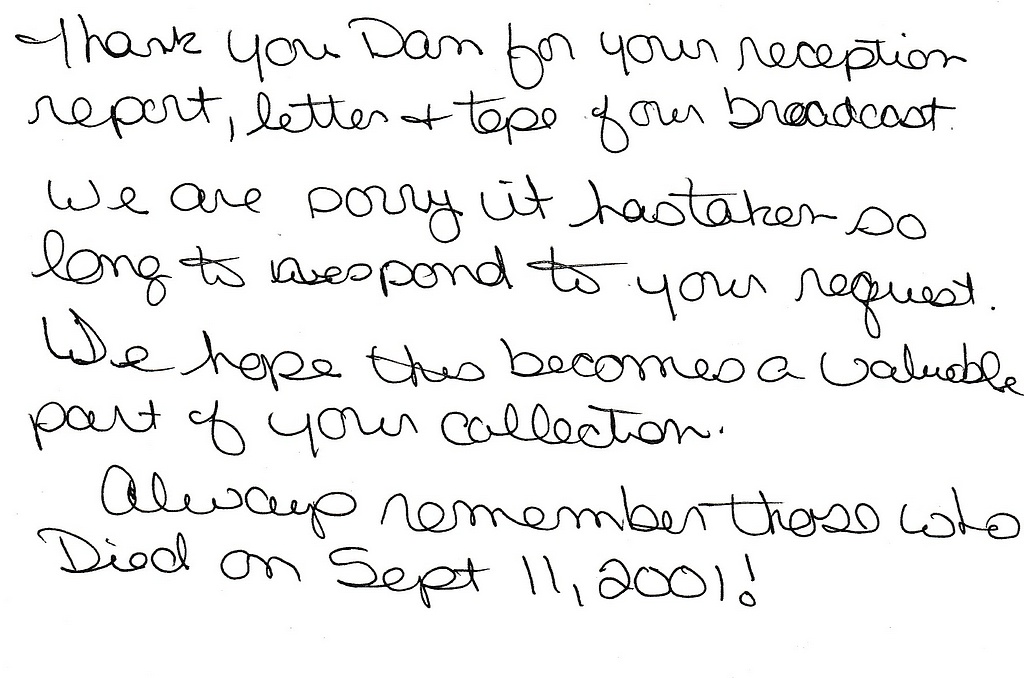 Thank you Dan for your reception
report, letter + tape of our broadcast.
We are sorry it has taken so
long to respond to your request.
We hope this becomes a valuable
part of your collection.
Always remember those who
Died on Sept 11, 2001!